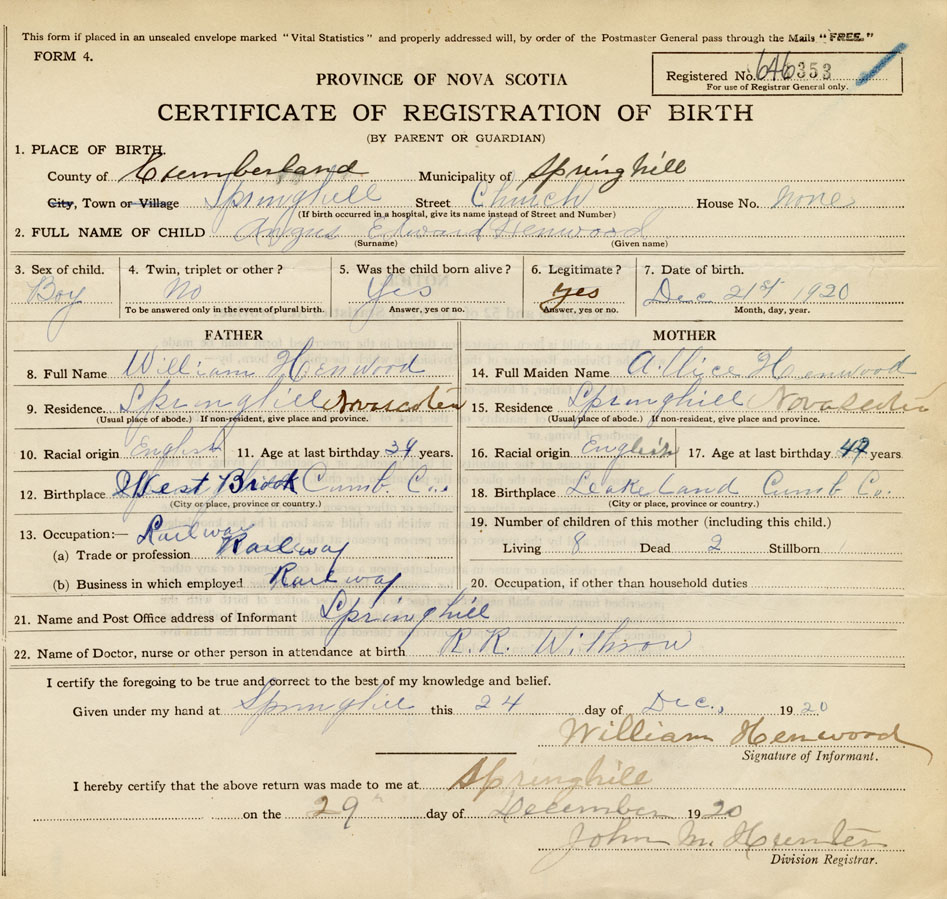 This form if placed in an unsealed envelope marked "Vital Statistics" and properly addressed will, by order of the Postmaster General pass through the Mails "FREE."
FORM 4.
Registered No. 646353
For use of Registrar General only.
PROVINCE OF NOVA SCOTIA
CERTIFICATE OF REGISTRATION OF BIRTH
(BY PARENT OR GUARDIAN)
1. PLACE OF BIRTH.
County of Cumberland Municipality of Springhill
City, Town or Village Springhill Street Church House No. none
(If birth occurred in a hospital, give its name instead of Street and Number)
2. FULL NAME OF CHILD Angus Edward Henwood
(Surname) (Given name)
3. Sex of child. 4. Twin, triplet or other? 5. Was the child born alive? 6. Legitimate? 7. Date of birth.
Boy No Yes yes Dec 21st 1920
To be answered only in the event of plural birth. Answer, yes or no. Answer, yes or no. Month, day, year.
FATHER MOTHER
8. Full Name William Henwood 14. Full Maiden Name Allice Henwood
9. Residence. Springhill Novascotia 15. Residence Springhill Novascotia
(Usual place of abode.) If non-resident, give place and province. (Usual place of abode.) If non-resident, give place and province.
10. Racial origin English 11. Age at last birthday 39 years. 16. Racial origin English 17. Age at last birthday 42 years
12. Birthplace West Brook Cumb. Co. 18. Birthplace Leakeland Cumb Co.
(City or place, province or country.) (City or place, province or country.)
13. Occupation:— Railway 19. Number of children of this mother (including this child.)
(a) Trade or profession Railway Living 8 Dead 2 Stillborn
(b) Business in which employed Railway 20. Occupation, if other than household duties
21. Name and Post Office address of Informant Springhill
22. Name of Doctor, nurse or other person in attendance at birth R. R. Withrow
I certify the foregoing to be true and correct to the best of my knowledge and belief.
Given under my hand at Springhill this 24 day of Dec., 1920
William Henwood
Signature of Informant.
I hereby certify that the above return was made to me at Springhill
on the 29 day of December 1920
John M. Hunter
Division Registrar.